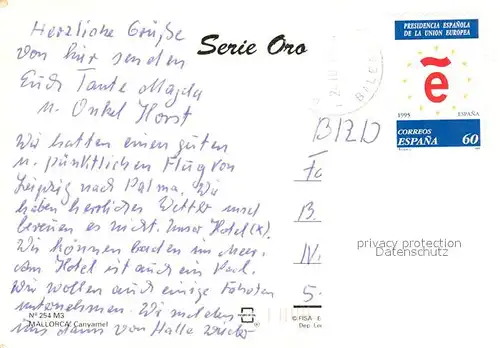 Herzliche Grüße
von hier senden
Euch Tante Magda
u. Onkel Horst
Wir hatten einen guten
u. pünktlichen Flug von
Leipzig nach Palma. Wir
haben herrliches Wetter und
bereuen es nicht. Unser Hotel (x).
Wir können baden im Meer,
am Hotel ist auch ein Pool.
Wir wollen auch einige Fahrten
unternehmen. Wir melden
uns dann von Halle wieder
Nº 254 M3
MALLORCA. Canyamel
Serie Oro
BALE
PRESIDENCIA ESPAÑOLA
DE LA UNION EUROPEA
ẽ
1995 ESPAÑA
CORREOS
ESPAÑA 60
BRD
Fa
B.
N.
5
privacy protection
Datenschutz
© FISA - E
Dep. Le